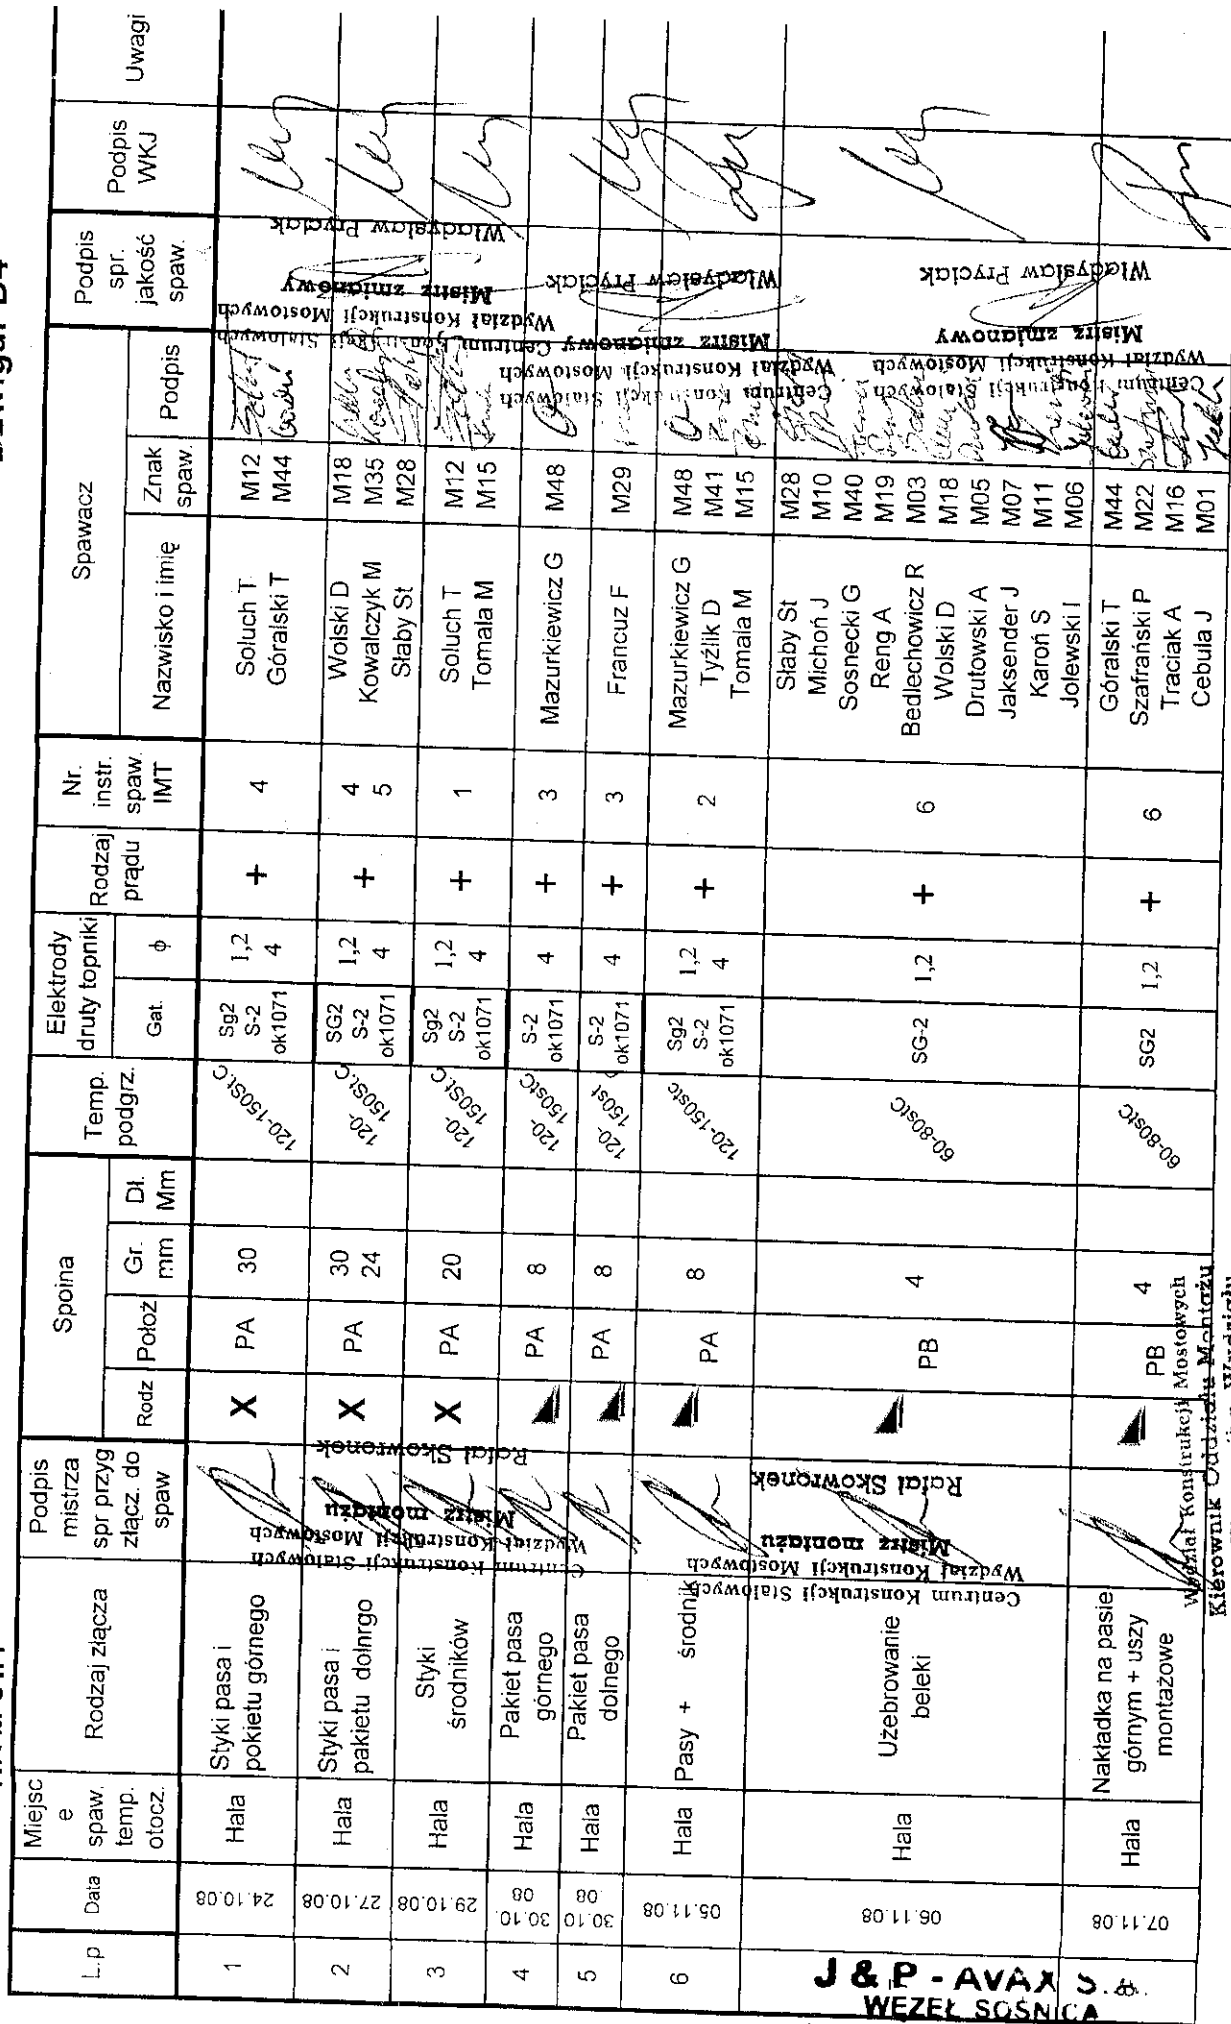 L.p
Data
Miejsc
e
spaw.
temp.
otocz.
Rodzaj złącza
Podpis
mistrza
spr przyg
złącz. do
spaw
Spoina
Rodz
Położ
Gr.
mm
Dł.
Mm
Temp.
podgrz.
Elektrody
druty topniki
Gat.
ϕ
Rodzaj
prądu
Nr.
instr.
spaw.
IMT
Spawacz
Nazwisko i imię
Znak
spaw.
Podpis
Podpis
spr.
jakość
spaw.
Podpis
WKJ
Uwagi
1
24.10.08
Hala
Styki pasa i
pokietu górnego
X
PA
30
120-150St.C
Sg2
S-2
ok1071
1,2
4
+
4
Soluch T
Góralski T
M12
M44
2
27.10.08
Hala
Styki pasa i
pakietu dolnrgo
X
PA
30
24
120-
150St.C
SG2
S-2
ok1071
1,2
4
+
4
5
Wolski D
Kowalczyk M
Słaby St
M18
M35
M28
3
29.10.08
Hala
Styki
środników
X
PA
20
120-
150St.C
Sg2
S-2
ok1071
1,2
4
+
1
Soluch T
Tomala M
M12
M15
4
30.10.
08
Hala
Pakiet pasa
górnego
PA
8
120-
150stC
S-2
ok1071
4
+
3
Mazurkiewicz G
M48
5
30.10
08
Hala
Pakiet pasa
dolnego
PA
8
120_
150st
S-2
ok1071
4
+
3
Francuz F
M29
6
05.11.08
Hala
Pasy + środnik
PA
8
120-150stc
Sg2
S-2
ok1071
1,2
4
+
2
Mazurkiewicz G
Tyźlik D
Tomala M
M48
M41
M15
06.11.08
Hala
Użebrowanie
beleki
PB
4
60-80stC
SG-2
1,2
+
6
Słaby St
Michoń J
Sosnecki G
Reng A
Bedlechowicz R
Wolski D
Drutowski A
Jaksender J
Karoń S
Jolewski I
M28
M10
M40
M19
M03
M18
M05
M07
M11
M06
07.11.08
Hala
Nakładka na pasie
górnym + uszy
montażowe
PB
4
60-80stC
SG2
1,2
+
6
Góralski T
Szafrański P
Traciak A
Cebula J
M44
M22
M16
M01
Centrum Konstrukcji Stalowych
Wydział Konstrukcji Mostowych
Mistrz montażu
Rafał Skowronek
Centrum Konstrukcji Stalowych
Wydział Konstrukcji Mostowych
Mistrz montażu
Rafał Skowronek
Centrum Konstrukcji Stalowych
Wydział Konstrukcji Mostowych
Mistrz zmianowy
Władysław Pryciak
Centrum Konstrukcji Stalowych
Wydział Konstrukcji Mostowych
Mistrz zmianowy
Władysław Pryciak
Centrum Konstrukcji Stalowych
Wydział Konstrukcji Mostowych
Mistrz zmianowy
Władysław Pryciak
Wydział Konstrukcji Mostowych
Kierownik Oddziału Montażu
J & P - AVAX S.A.
WĘZEŁ SOŚNICA